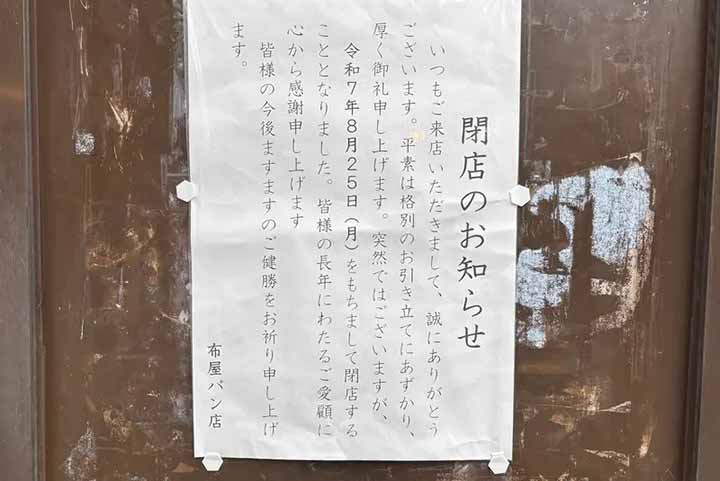 閉店のお知らせ
いつもご来店いただきまして、誠にありがとう
ございます。平素は格別のお引き立てにあずかり、
厚く御礼申し上げます。突然ではございますが、
令和７年８月２５日（月）をもちまして閉店する
こととなりました。皆様の長年にわたるご愛顧に
心から感謝申し上げます
皆様の今後ますますのご健勝をお祈り申し上げ
ます。
布屋パン店